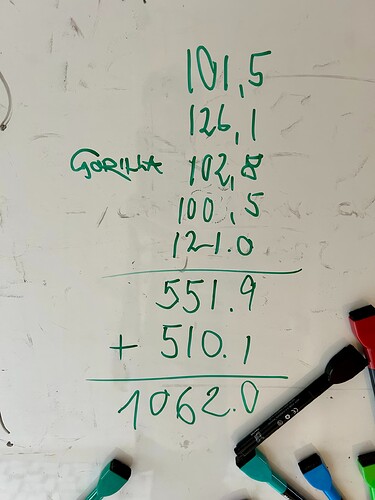 101,5
126,1
GORILLA 102,8
100,5
121.0
551.9
+ 510.1
1062.0